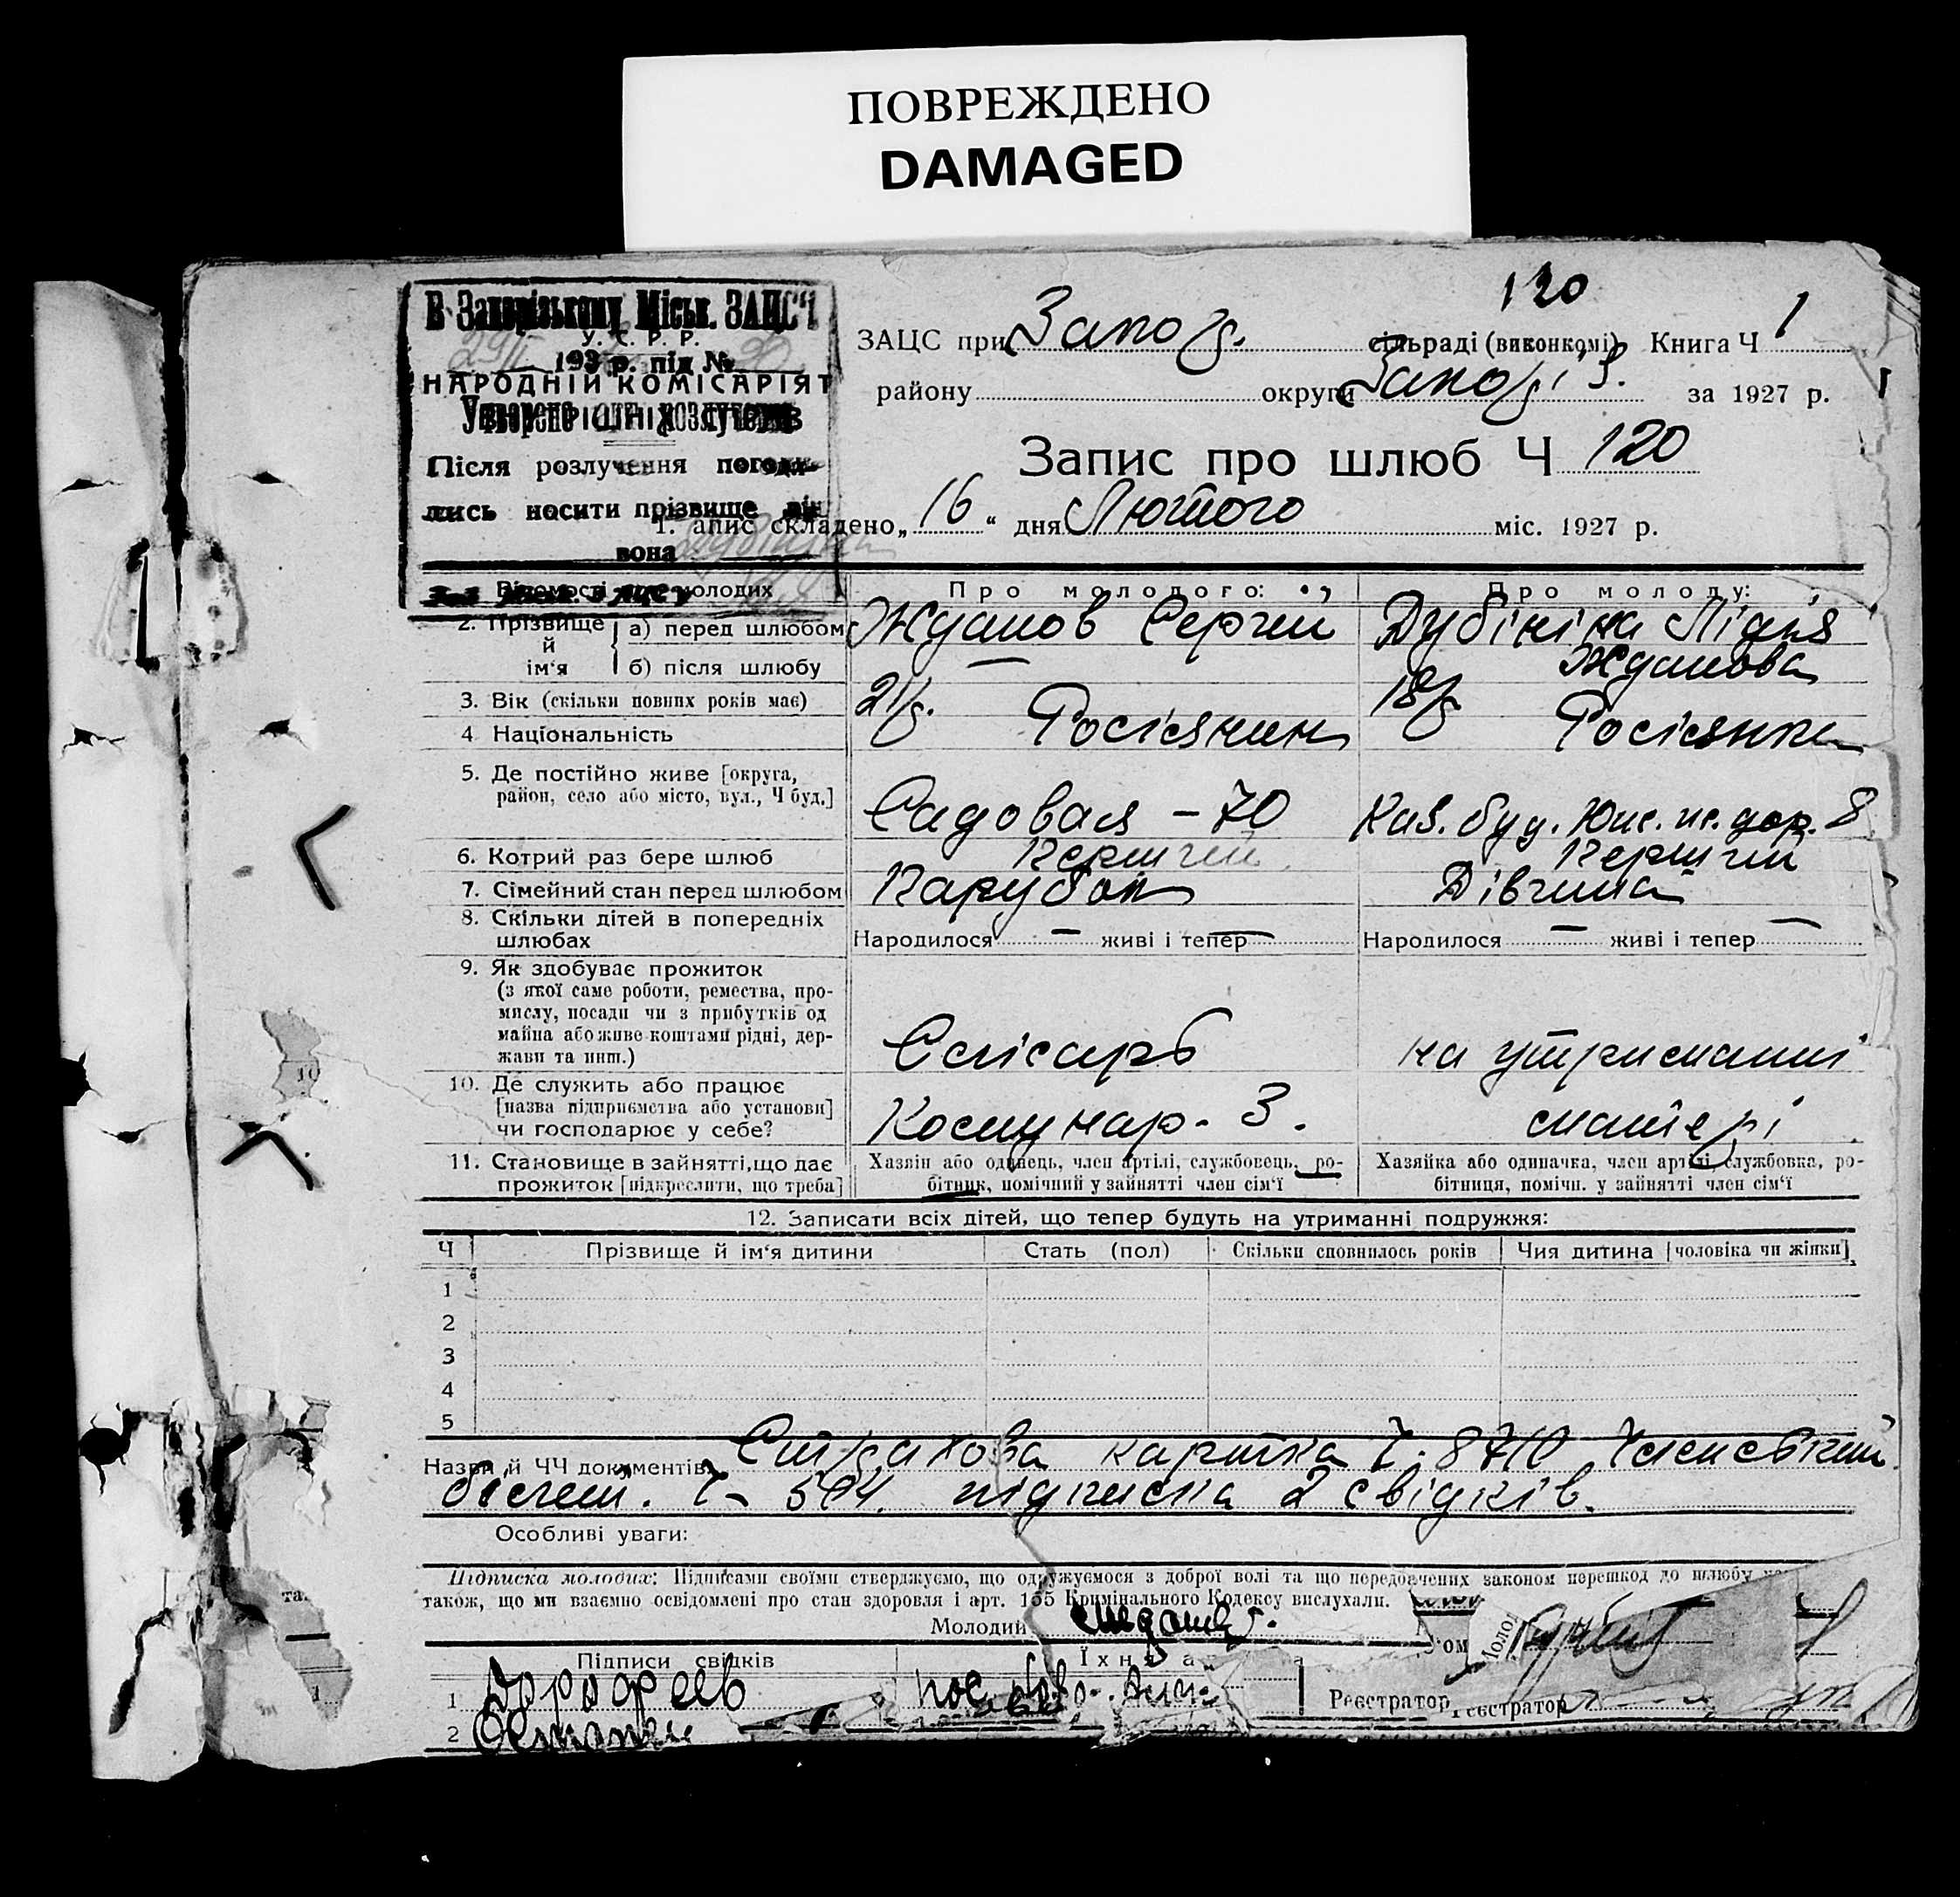 ПОВРЕЖДЕНО
DAMAGED
120
В Запорізькому Міськ. ЗАЦС‘і
У. С. Р. Р.
193 р. під №
НАРОДНІЙ КОМІСАРІЯТ
Після розлучення погоди-
лись носити прізвище він
вона
ЗАЦС при Запор. сільраді (виконкомі) Книга Ч 1
району округи за 1927 р.
Запис про шлюб Ч 120
1. апис складено „16“ дня Лютого міс. 1927 р.
Відомості молодих Про молодого: Про молоду:
2. Прізвище й ім‘я а) перед шлюбом Жданов Сергій Дубініна Лідія
б) після шлюбу — Жданова
3. Вік (скільки повних років має) 21 р. 18 р
4 Національність Росіянин Росіянка
5. Де постійно живе [округа,
район, село або місто, вул., Ч буд.] Садовая – 70 буд. 8
6. Котрий раз бере шлюб Перший Перший
7. Сімейний стан перед шлюбом Парубок Дівчина
8. Скільки дітей в попередніх
шлюбах Народилося — живі і тепер — Народилося — живі і тепер —
9. Як здобуває прожиток
(з якої саме роботи, ремества, про-
мислу, посади чи з прибутків од
майна або живе коштами рідні, дер-
жави та инш.) Слісарь на утриманні
10. Де служить або працює
[назва підприємства або установи]
чи господарює у себе? Комунар. З. матері
11. Становище в зайнятті, що дає
прожиток [підкреслити, що треба]
Хазяін або одинець, член артілі, службовець, ро-
бітник, помічний у зайнятті член сім‘ї
Хазяйка або одиначка, член артілі службовка, ро-
бітниця, помічн. у зайнятті член сім‘ї
12. Записати всіх дітей, що тепер будуть на утриманні подружжя:
Ч Прізвище й ім‘я дитини Стать (пол) Скільки сповнилось років Чия дитина [чоловіка чи жінки]
1
2
3
4
5
Назви й ЧЧ документів: Страхова картка Ч. 8710 Членський
білет. Ч – 564. підписка 2 свідків.
Особливі уваги:
Підписка молодих: Підписами своїми стверджуємо, що одружуємося з доброї волі та що передбачених законом перешкод до шлюбу
також, що ми взаємно освідомлені про стан здоровля і арт. 155 Кримінального Кодексу вислухали.
Молодий
Підписи свідків Їхня а
1 Дорофеев
2
Реєстратор еєстратор